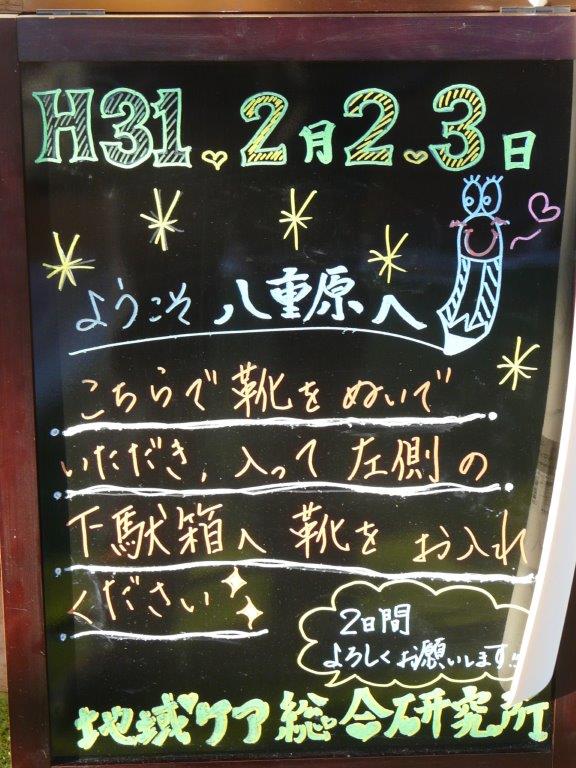 H31.2月2.3日
ようこそ 八重原へ
こちらで 靴を ぬいで
いただき、入って 左側の
下駄箱へ 靴を お入れ
ください
2日間
よろしくお願いします!!
地域ケア総合研究所